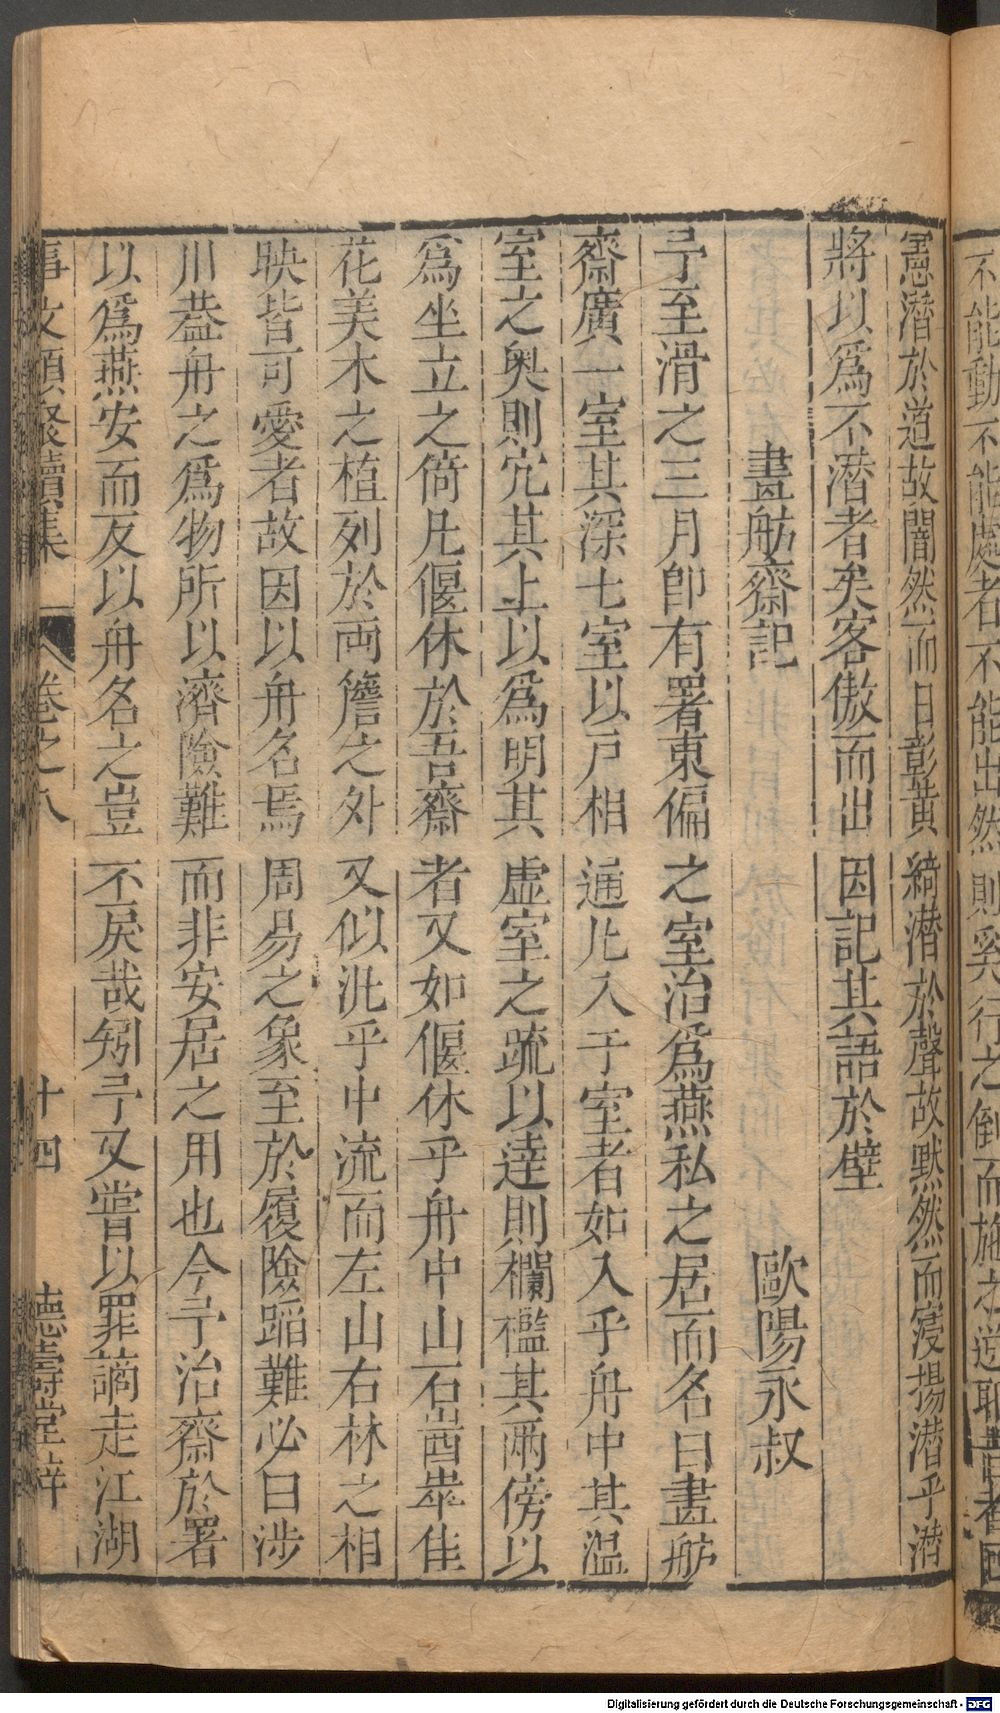 不能動不能處者不能出然則奚行之倒而施之逆耶昔者回
憲潛於道故闇然而日彰黃綺潛於聲故默然而寖揚潛乎潛
將以爲不潛者矣客傲而出因記其語於壁
畫舫齋記　歐陽永叔
予至滑之三月卽有署東偏之室治爲燕私之居而名曰畫舫
齋廣一室其深七室以戶相通凡入于室者如入乎舟中其溫
室之奥則宂其上以爲明其虛室之疏以達則欄檻其兩傍以
爲坐立之倚凡偃休於吾齋者又如偃休乎舟中山石崷崒佳
花美木之植列於両簷之外又似泚乎中流而左山右林之相
映皆可愛者故因以舟名焉周易之象至於履險蹈難必曰涉
川葢舟之爲物所以濟險難而非安居之用也今予治齋於署
以爲燕安而反以舟名之豈不戾哉矧予又嘗以罪謫走江湖
事文類聚續集　卷之八　十四　德壽堂梓
Digitalisierung gefördert durch die Deutsche Forschungsgemeinschaft - DFG